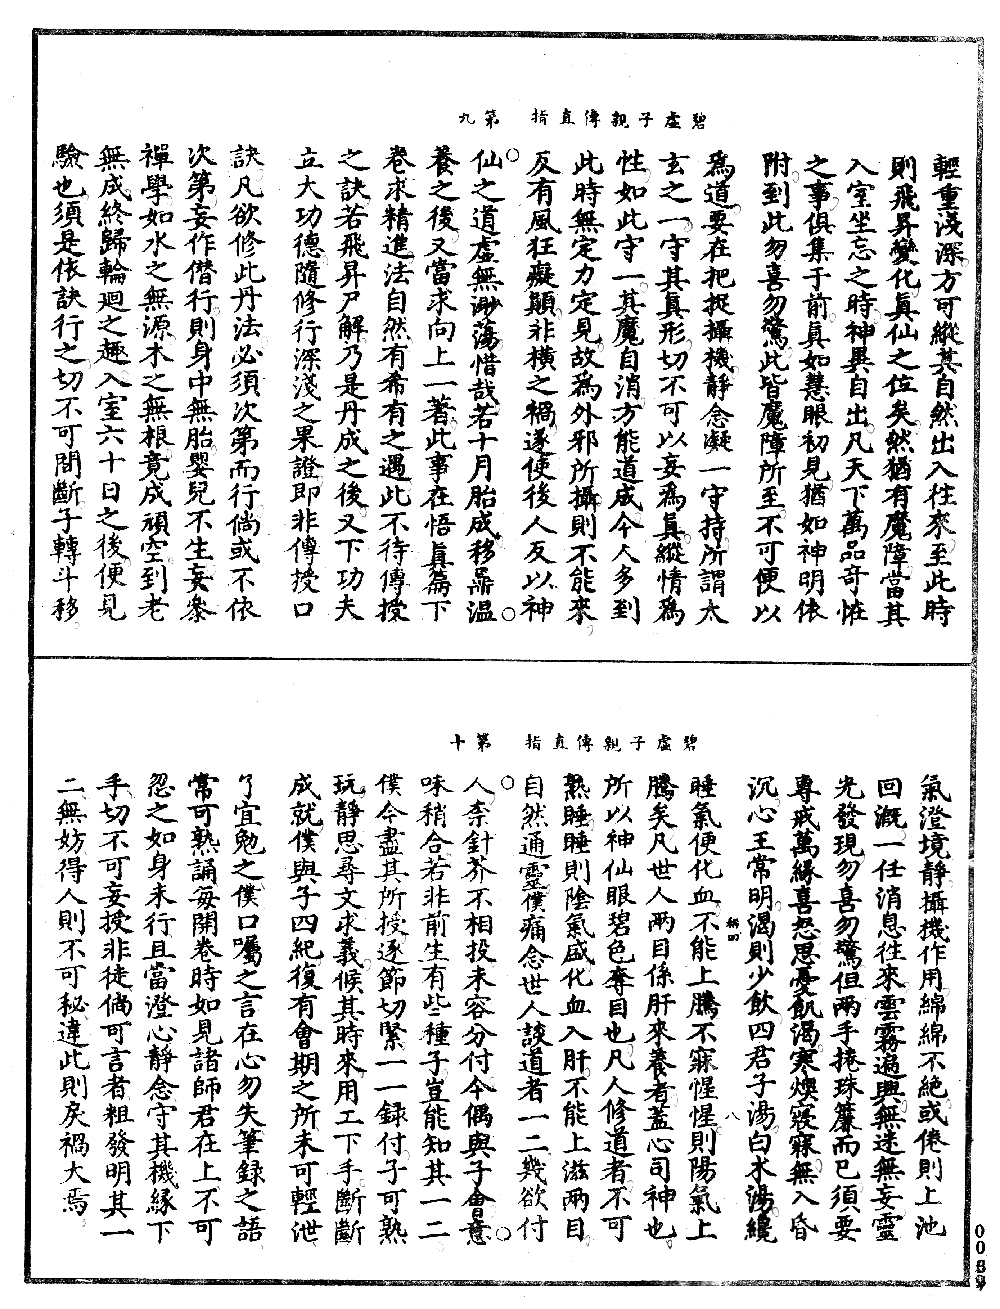 碧虛子親傳直指　第九
輕重淺深方可縱其自然出入往來至此時
則飛昇變化真仙之位矣然猶有魔障當其
入室坐忘之時神異自出凡天下萬品奇怪
之事俱集于前真如慧眼初見猶如神明依
附到此勿喜勿驚此皆魔障所至不可便以
為道要在把捉攝機靜念凝一守持所謂太
玄之一守其真形切不可以妄為真縱情為
性如此守一其魔自消方能道成今人多到
此時無定力定見故為外邪所攝則不能來
反有風狂癡顛非橫之禍遂使後人反以神
仙之道虛無渺蕩惜哉若十月胎成移鼎溫
養之後又當求向上一著此事在悟真篇下
卷求精進法自然有希有之遇此不待傳授
之訣若飛昇尸解乃是丹成之後又下功夫
立大功德隨修行深淺之果證即非傳授口
訣凡欲修此丹法必須次第而行倘或不依
次第妄作僭行則身中無胎嬰兒不生妄參
禪學如水之無源木之無根竟成頑空到老
無成終歸輪迴之趣入室六十日之後便見
驗也須是依訣行之切不可間斷子轉斗移
碧虛子親傳直指　第十
氣澄境靜攝機作用綿綿不絕或倦則上池
回溉一任消息往來雲霧遍興無迷無妄靈
光發現勿喜勿驚但兩手捲珠簾而已須要
專戒萬緣喜怒思憂飢渴寒煖寢寐無入昏
沉心王常明渴則少飲四君子湯白水湯纔
睡氣便化血不能上騰不寐惺惺則陽氣上
騰矣凡世人兩目係肝來養者蓋心司神也
所以神仙眼碧色奪目也凡人修道者不可
熟睡睡則陰氣盛化血入肝不能上滋兩目
自然通靈僕痛念世人談道者一二幾欲付
人柰針芥不相投未容分付今偶與子會意
味稍合若非前生有些種子豈能知其一二
僕今盡其所授逐節切緊一一錄付子可熟
玩靜思尋文求義候其時來用工下手斷斷
成就僕與子四紀復有會期之所未可輕泄
了宜勉之僕口囑之言在心勿失筆錄之語
常可熟誦每開卷時如見諸師君在上不可
忽之如身未行且當澄心靜念守其機緣下
手切不可妄授非徒倘可言者粗發明其一
二無妨得人則不可秘違此則戾禍大焉
稱四
八